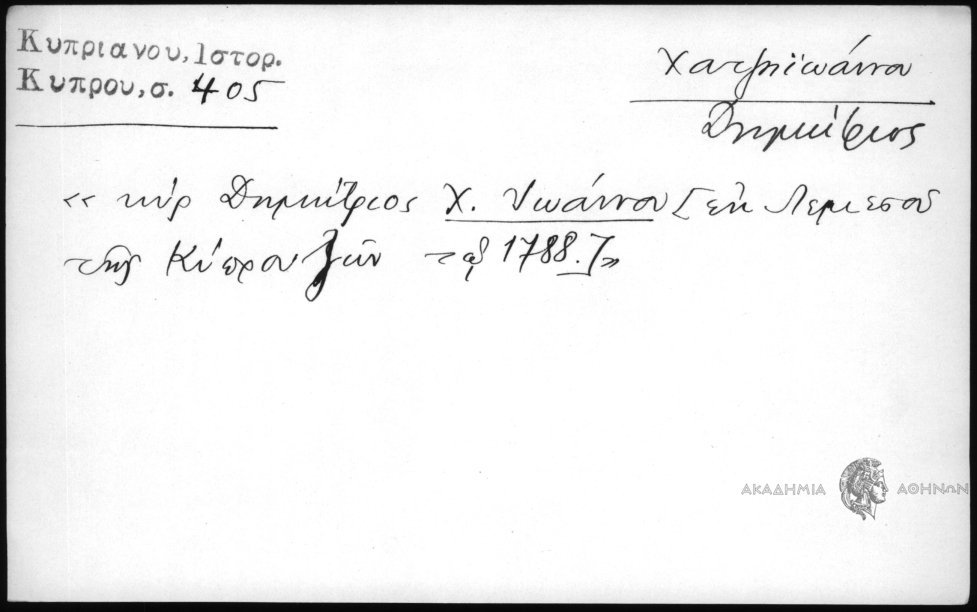 Κυπριανου, Ιστορ.
Κυπρου, σ. 405
Χατζηϊωάννου
Δημήτριος
«κὺρ Δημήτριος Χ. Ἰωάννου [ἐκ Λεμεσοῦ
τῆς Κύπρου ζῶν τῷ 1788.]»
ΑΚΑΔΗΜΙΑ ΑΘΗΝΩΝ